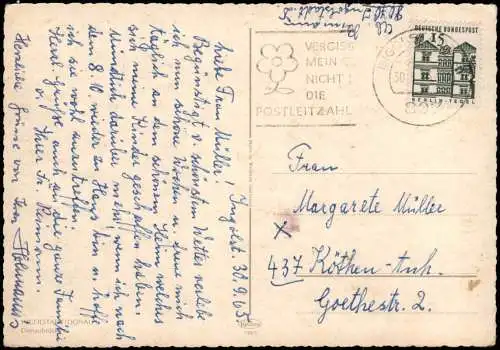 Ingolst. 30.9.65.
Liebe Frau Müller!
Begünstigt v. schönstem Wetter verlebe
ich nun schöne Wochen u. freue mich
täglich an dem schönen Heim welches
sich meine Kinder geschaffen haben.
Mündlich darüber mehr wenn ich nach
dem 8.10. wieder zu Haus bin u. hoffe
ich sie wohl anzutreffen.
Herzl. Grüße auch an die ganze Familie
Herzliche Grüsse von Ihrer
INGOLSTADT/DONAU
Donaubrücke
Ingolstadt
VERGISS
MEIN
NICHT
DIE
POSTLEITZAHL
30.
DEUTSCHE BUNDESPOST
15
BERLIN-TEGEL
Frau
Margarete Müller
X
437 Köthen-Anh.
Goethestr. 2.